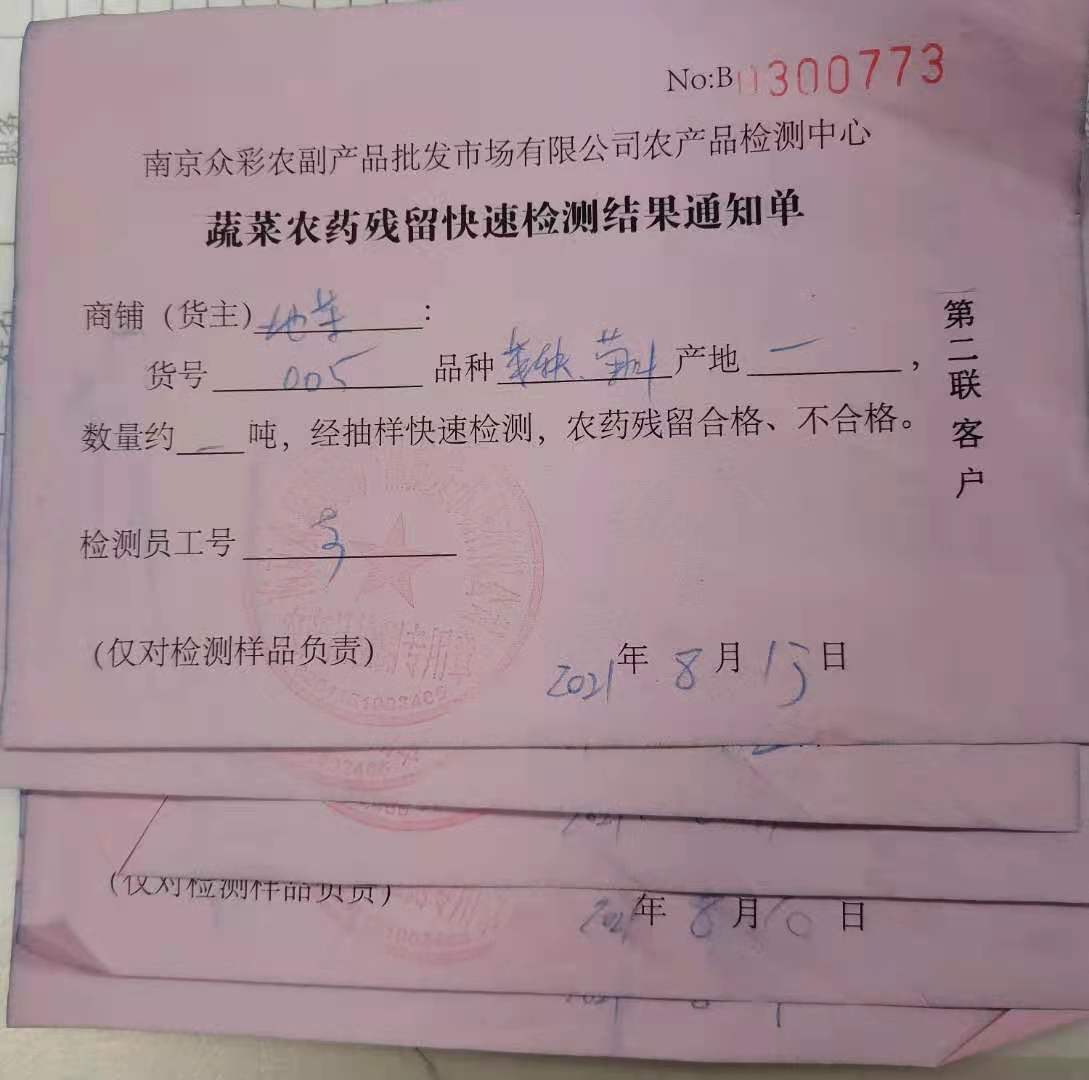 No:B 0300773
南京众彩农副产品批发市场有限公司农产品检测中心
蔬菜农药残留快速检测结果通知单
商铺（货主）地菜：
货号 005 品种 产地 一，
数量约 一 吨，经抽样快速检测，农药残留合格、不合格。
检测员工号
（仅对检测样品负责）
2021年 8月 13日
第二联客户
（仅对检测样品负责）
2021年 8月10日
2021